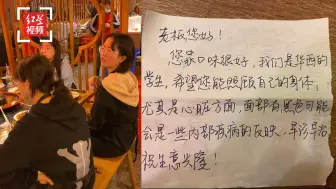 红星视频
老板您好！
您家口味很好，我们是华西的
学生，希望您能照顾自己的身体，
尤其是心脏方面，面部有黑色可能
会是一些内部疾病的反映，早诊早治
祝生意兴隆！